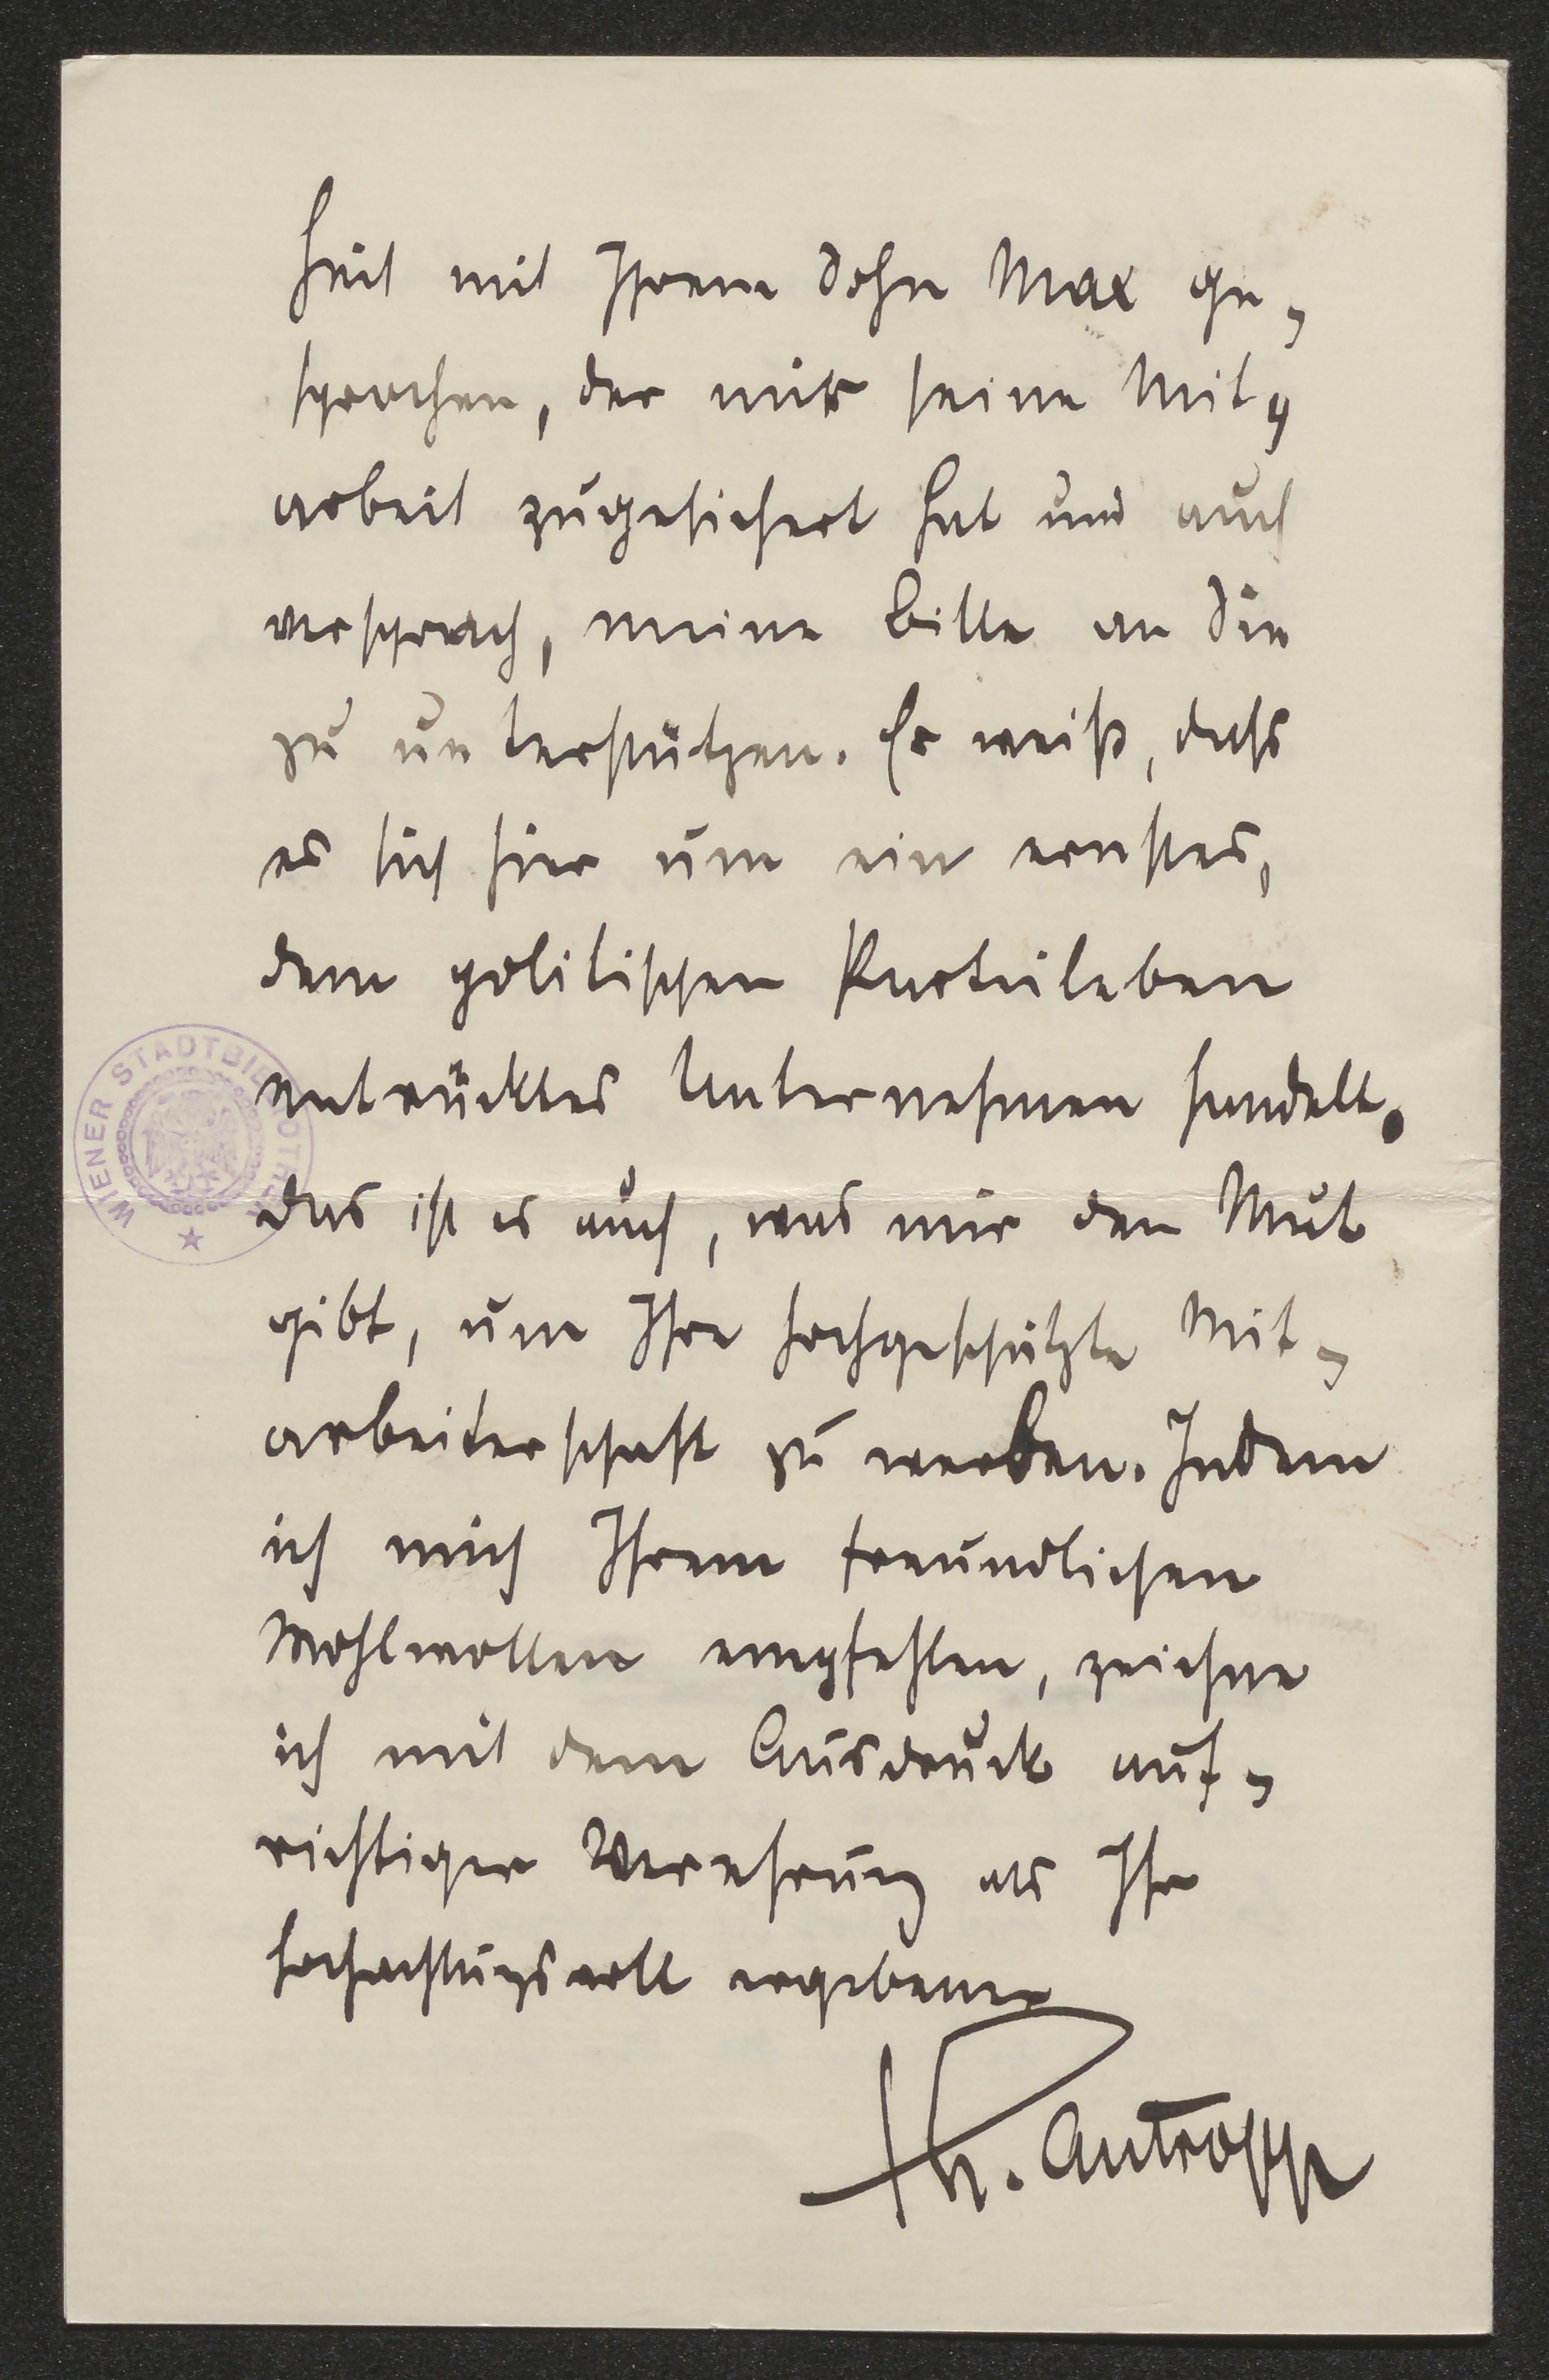 heit mit Ihrem Sohn Max ge-
sprochen, der mir seine Mit-
arbeit zugesichert hat und auch
versprach, meine Bitte an Sie
zu unterstützen. Er weiß, dass
es sich hier um ein ernstes,
dem politischen Parteileben
entrücktes Unternehmen handelt.
Das ist es auch, was mir den Mut
gibt, um Ihre hochgeschätzte Mit-
arbeiterschaft zu werben. Indem
ich mich Ihrem freundlichen
Wohlwollen empfehlen, zeichne
ich mit dem Ausdruck auf-
richtiger Verehrung als Ihr
hochachtungsvoll ergebener
Th. Antropp
WIENER STADTBIBLIOTHEK